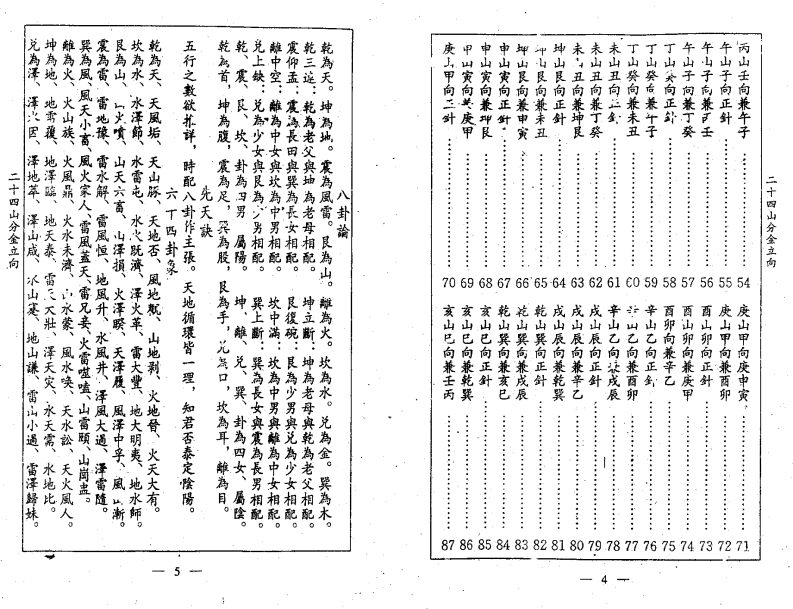 二十四山分金立向
丙山壬向兼午子……54
午山子向正針……55
午山子向兼丙壬……56
午山子向兼丁癸……57
丁山癸向正針……58
丁山癸向兼午子……59
丁山癸向兼未丑……60
未山丑向正針……61
未山丑向兼丁癸……62
未山丑向兼坤艮……63
坤山艮向正針……64
坤山艮向兼未丑……65
坤山艮向兼申寅……66
申山寅向正針……67
申山寅向兼坤艮……68
申山寅向兼庚甲……69
庚山甲向正針……70
庚山甲向庚申寅……71
庚山甲向兼酉卯……72
酉山卯向正針……73
酉山卯向兼庚甲……74
酉山卯向兼辛乙……75
辛山乙向正針……76
辛山乙向兼酉卯……77
辛山乙向兼戌辰……78
戌山辰向正針……79
戌山辰向兼辛乙……80
戌山辰向兼乾巽……81
乾山巽向正針……82
乾山巽向兼戌辰……83
乾山巽向兼亥巳……84
亥山巳向正針……85
亥山巳向兼乾巽……86
亥山巳向兼壬丙……87
— 4 —
八卦論
乾為天。坤為地。震為風雷。艮為山。離為火。坎為水。兌為金。巽為木。
乾三連：乾為老父與坤為老母相配。坤立斷：坤為老母與乾為老父相配。
震仰盂：震為長田與巽為長女相配。艮復碗：艮為少男與兌為少女相配。
離中空：離為中女與坎為中男相配。坎中滿：坎為中男與離為中女相配。
兌上缺：兌為少女與艮為少男相配。巽上斷：巽為長女與震為長男相配。
乾、震、艮、坎、卦為四男、屬陽。坤、離、兌、巽、卦為四女、屬陰。
乾為首，坤為腹，震為足，巽為股，艮為手，兌為口，坎為耳，離為目。
先天訣
五行之數欲參詳，時配八卦作主張。天地循環皆一理，知君否泰定陰陽。
六十四卦象
乾為天、天風垢、天山豚、天地否、風地覌、山地剥、火地晉、火天大有。
坎為水、水澤節、水雷屯、水火既濟、澤火革、雷火豐、地大明夷、地水師。
艮為山、山火噴、山天六畜、山澤損、火澤睽、天澤履、風澤中孚、風山漸。
震為雷、雷地豫、雷水解、雷風恒、地風升、水風井、澤風大過、澤雷隨。
巽為風、風天小畜、風火家人、風雷益、天雷无妄、火雷噬嗑、山雷頤、山風蠱。
離為火、火山旅、火風鼎、火水未濟、山水蒙、風水喚、天水訟、天火風人。
坤為地、地雷覆、地澤臨、地天泰、雷天大壯、澤天夬、水天需、水地比。
兌為澤、澤水困、澤地萃、澤山咸、水山蹇、地山謙、雷山小過、雷澤歸妹。
二十四山分金立向
— 5 —